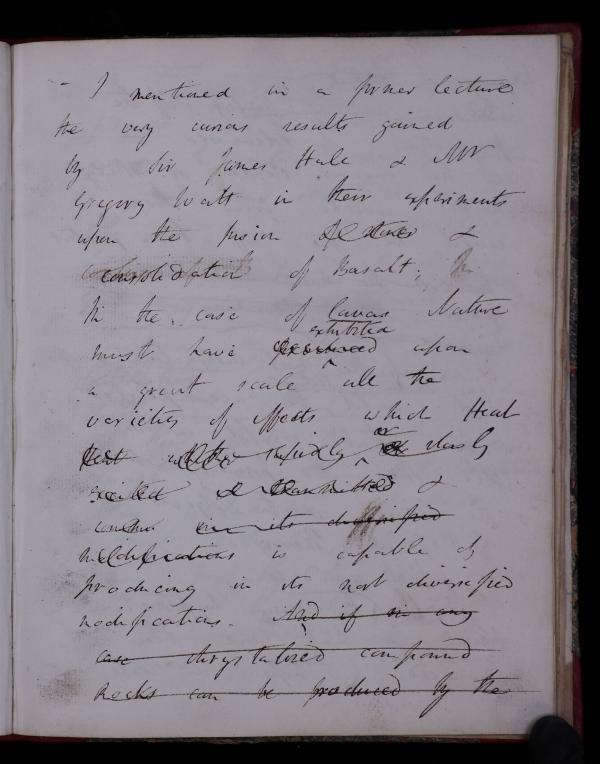 - I mentioned in a former lecture
the very curious results gained
by Sir James Hall & Mr
Gregory Watt in their experiments
upon the fusion of stones &
consolidation of Basalt;
In the case of lavas Nature
exhibited
must have produced upon
a great scale all the
varieties of effects which Heat
or
rapidly or slowly
excited & transmitted &
under in its diversified
modifications is capable of
producing in its most diversified
modifications. And if in any
case chrystalized compound
Rocks can be produced by the